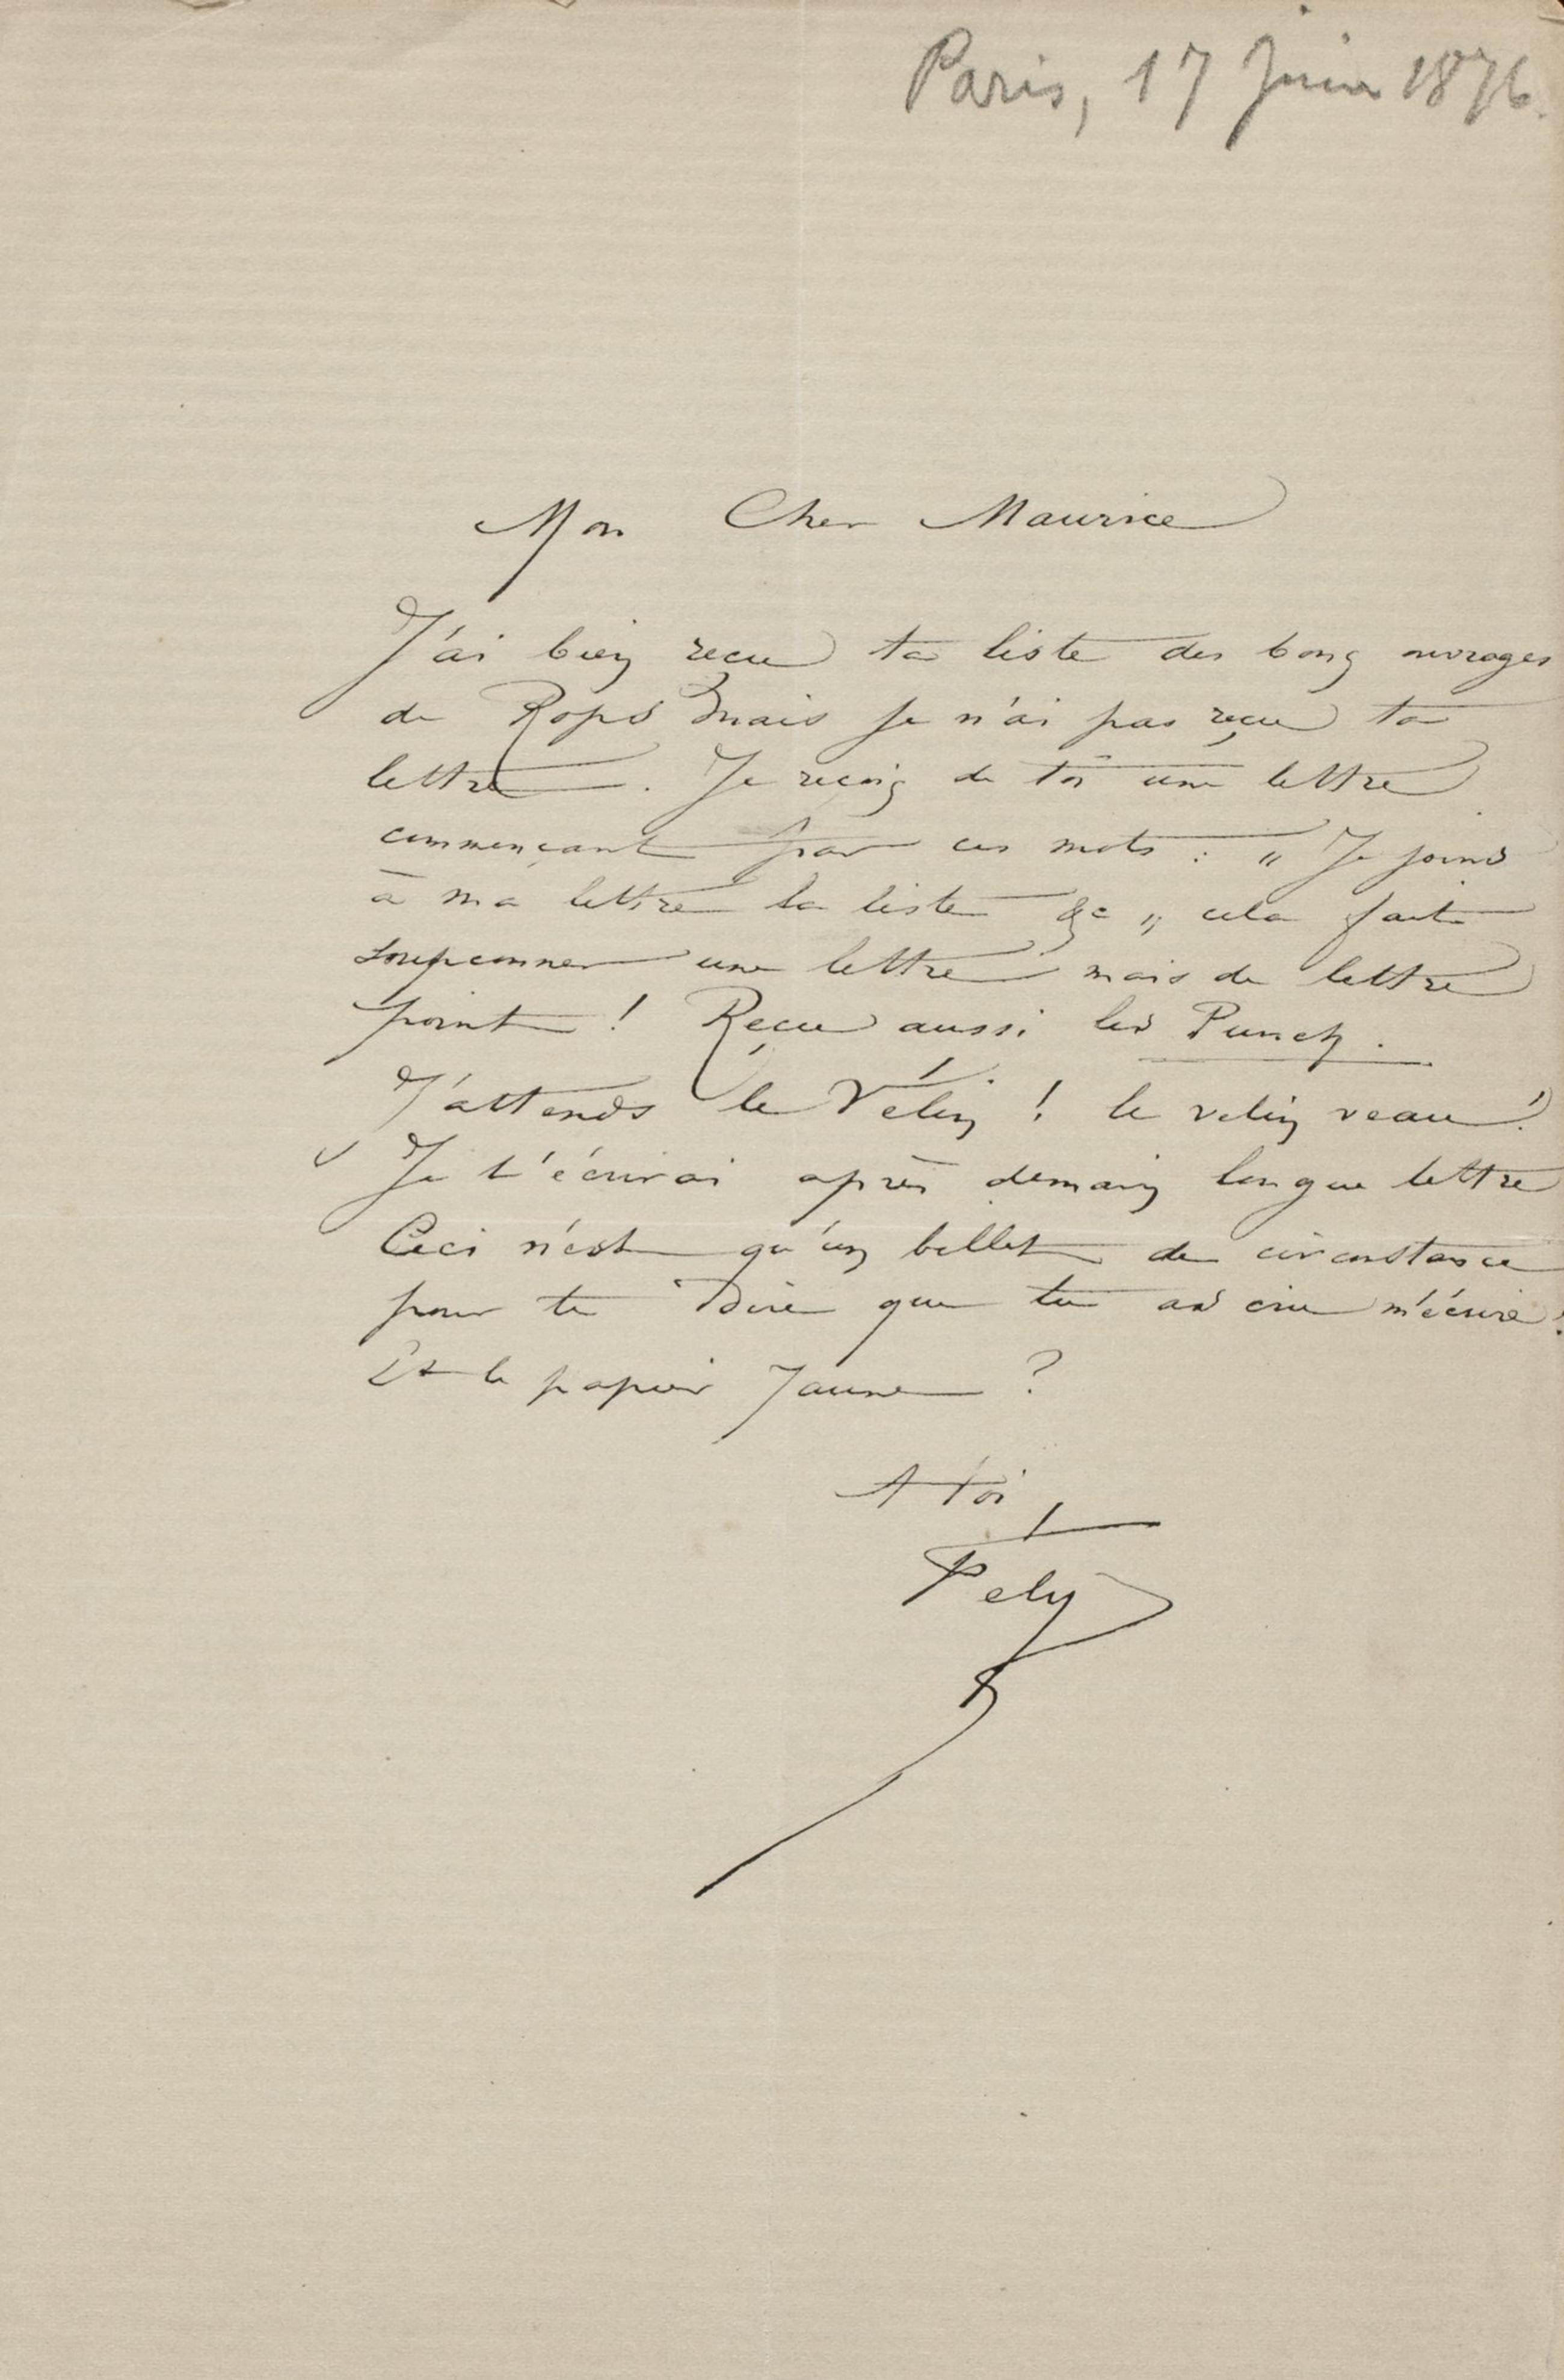 Paris, 17 Juin 1876.
Mon Cher Maurice
J'ai bien reçu ta liste des bons ouvrages
de Rops mais je n'ai pas reçu ta
lettre. Je reçois de toi une lettre
commençant par ces mots : „ Je joins
à ma lettre la liste &c „ cela fait
soupçonner une lettre mais de lettre
point ! Reçu aussi les Punch.
J'attends le Vélin ! le velin veau !
Je t'écrirai après demain longue lettre
Ceci n'est qu'un billet de circonstance
pour te dire que tu as cru m'écrire !
Et le papier Jaune ?
A toi,
Fély